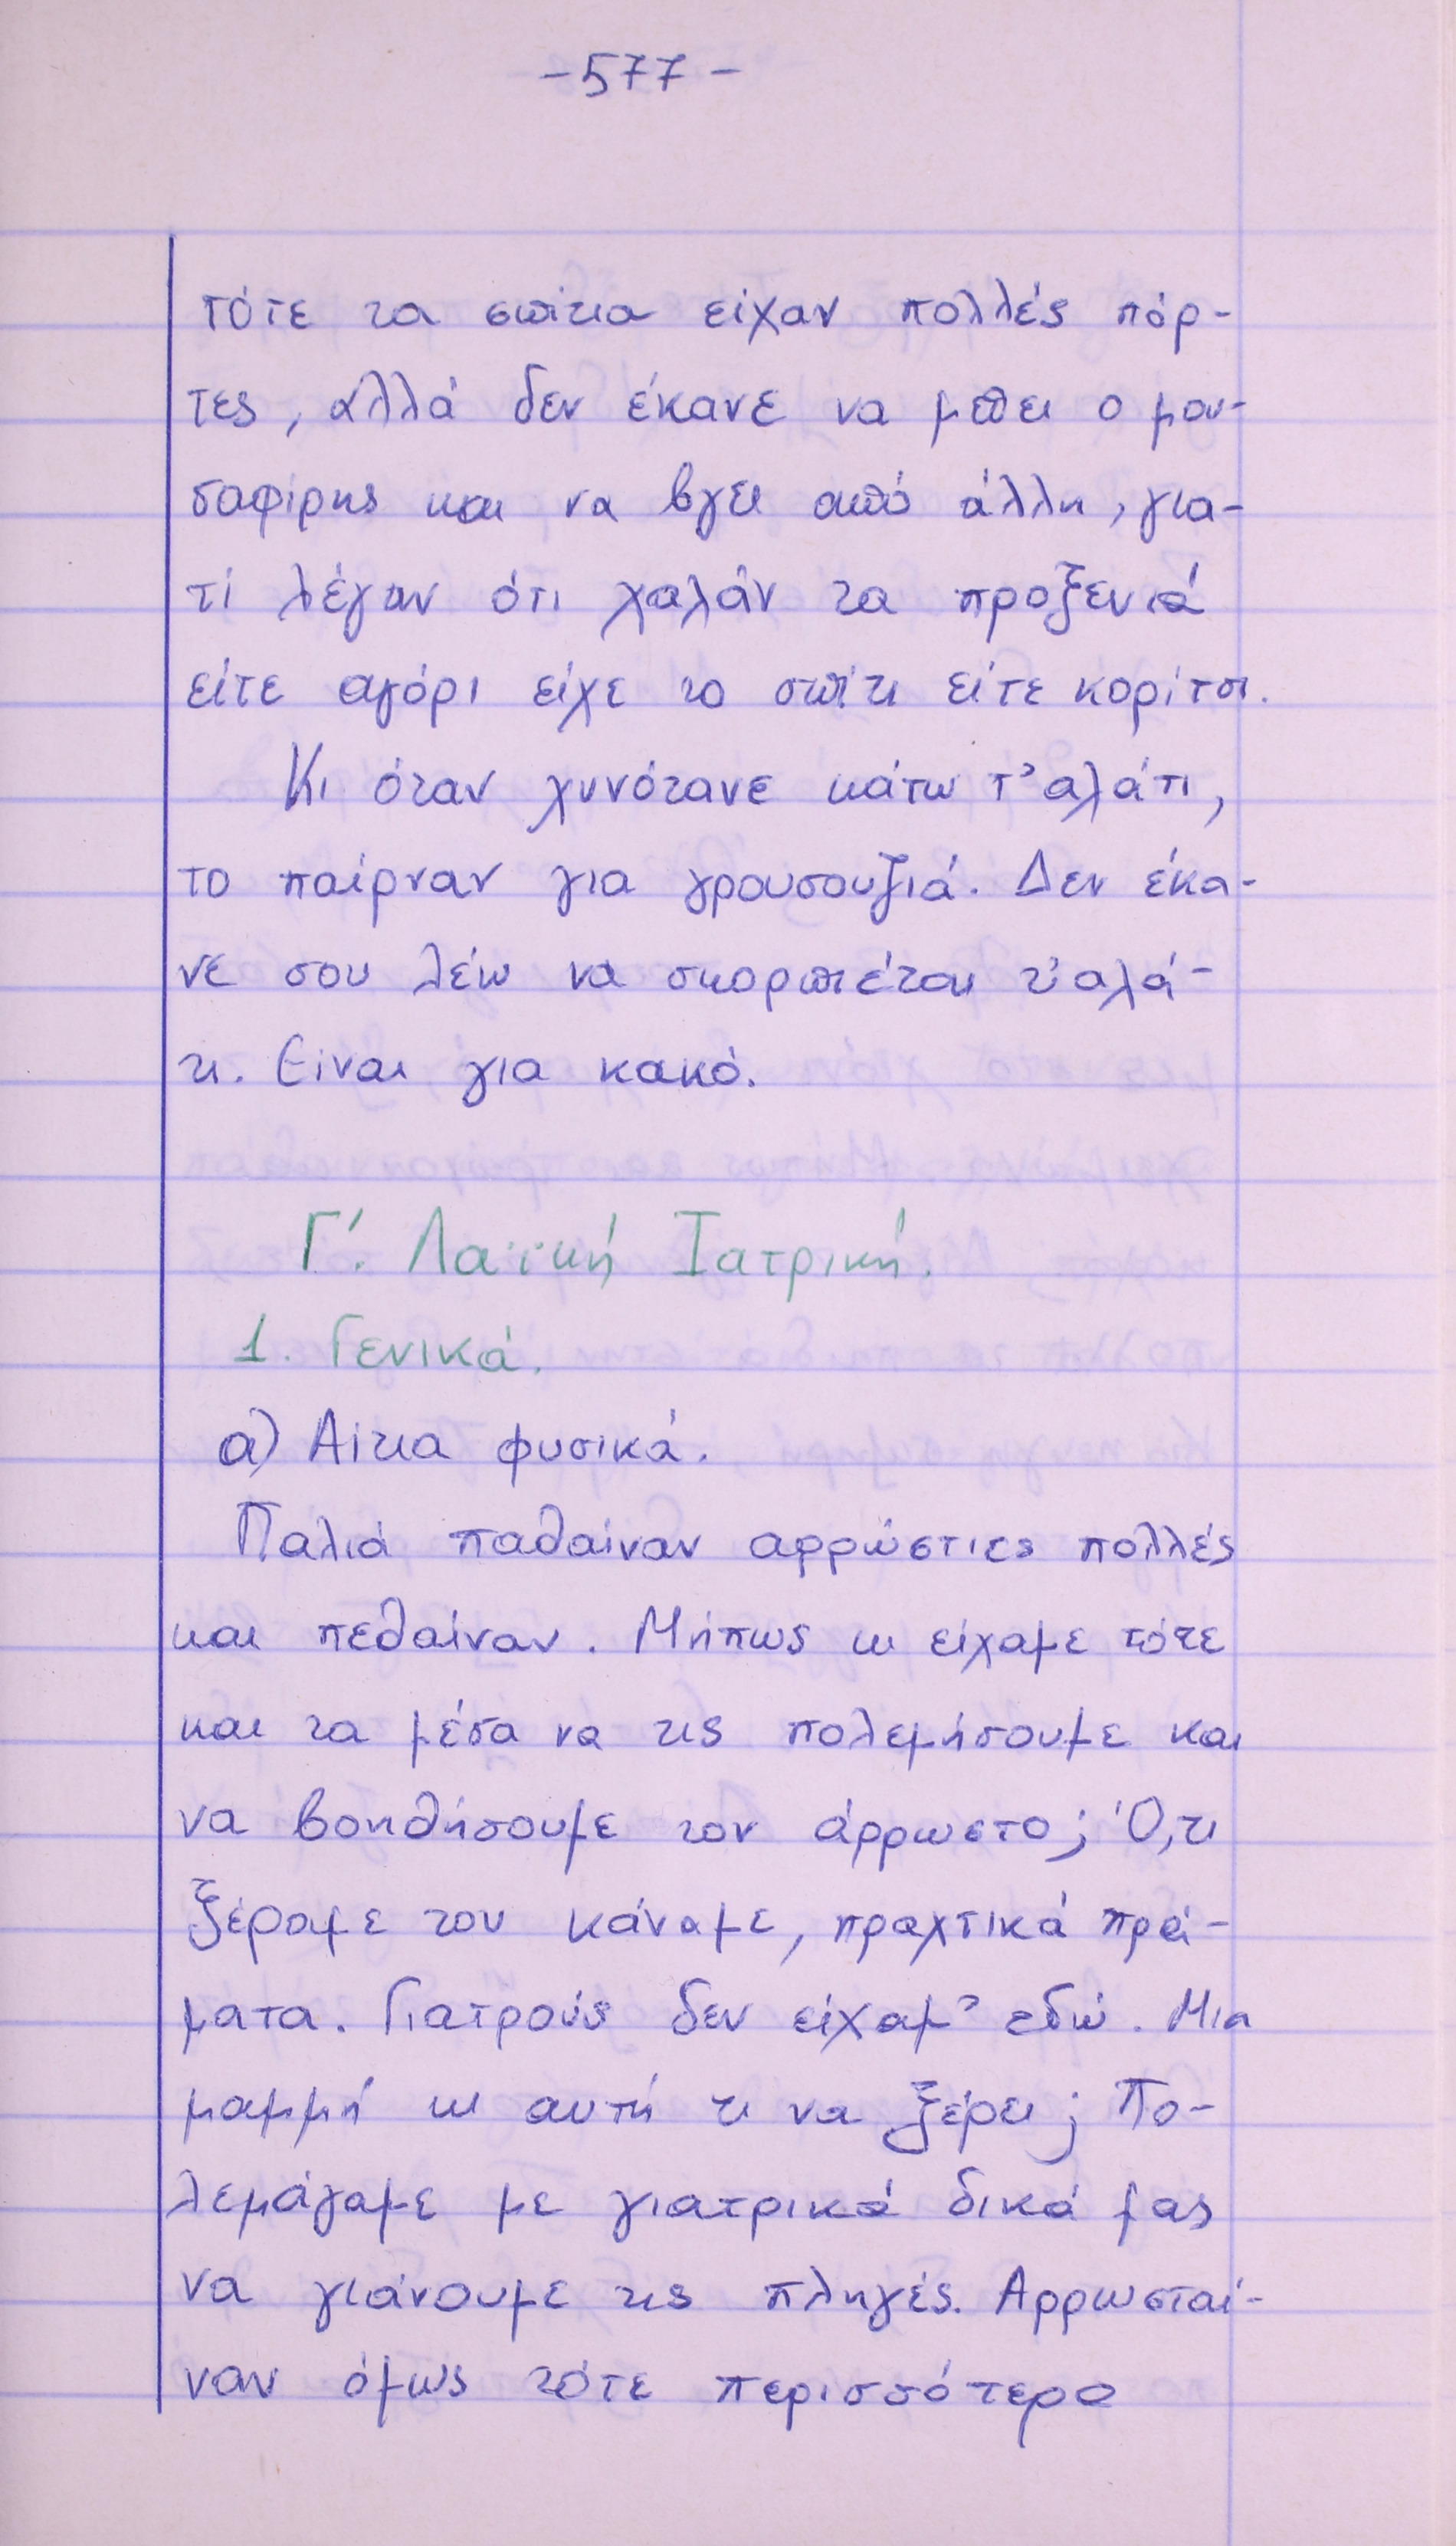 -577-
τότε τα σπίτια είχαν πολλές πόρ-
τες, αλλά δεν έκανε να μπει ο μου-
σαφίρης και να βγει από άλλη, για-
τί λέγαν ότι χαλάν τα προξενιά
είτε αγόρι είχε το σπίτι είτε κορίτσι.
Κι όταν χυνότανε κάτω τ' αλάτι,
το παίρναν για γρουσουζιά. Δεν έκα-
νε σου λέω να σκορπιέται τ' αλά-
τι. Είναι για κακό.
Γ'. Λαϊκή Ιατρική.
1. Γενικά.
α) Αίτια φυσικά.
Παλιά παθαίναν αρρώστιες πολλές
και πεθαίναν. Μήπως κι είχαμε τότε
και τα μέσα να τις πολεμήσουμε και
να βοηθήσουμε τον άρρωστο; Ό,τι
ξέραμε του κάναμε, πραχτικά πρά-
ματα. Γιατρούς δεν είχαμ' εδώ. Μια
μαμμή κι αυτή τι να ξέρει; Πο-
λεμάγαμε με γιατρικά δικά μας
να γιάνουμε τις πληγές. Αρρωσταί-
ναν όμως τότε περισσότερο